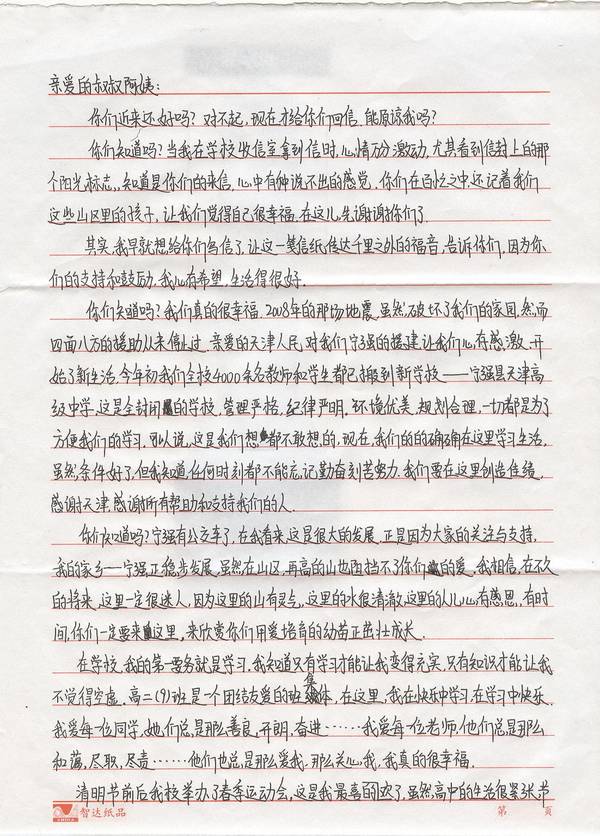 亲爱的叔叔阿姨：
你们近来还好吗？对不起，现在才给你们回信，能原谅我吗？
你们知道吗？当我在学校收信室拿到信时，心情万分激动，尤其看到信封上的那
个阳光标志，知道是你们的来信，心中有种说不出的感觉，你们在百忙之中，还记着我们
这些山区里的孩子，让我们觉得自己很幸福，在这儿先谢谢你们了。
其实，我早就想给你们写信了，让这一笺信纸传达千里之外的福音，告诉你们，因为你
们的支持和鼓励，我心有希望，生活得很好。
你们知道吗？我们真的很幸福，2008年的那场地震，虽然破坏了我们的家园，然而
四面八方的援助从未停止过，亲爱的天津人民，对我们宁强的援建，让我们心存感激，开
始了新生活，今年初我们全校4000余名教师和学生都已搬到新学校——宁强县天津高
级中学，这是全封闭的学校，管理严格，纪律严明，环境优美，规划合理，一切都是为了
方便我们的学习，可以说，这是我们想都不敢想的，现在，我们的的确确在这里学习生活，
虽然条件好了，但我知道，任何时刻都不能忘记勤奋刻苦努力，我们要在这里创造佳绩，
感谢天津，感谢所有帮助和支持我们的人。
你们知道吗？宁强有公交车了，在我看来，这是很大的发展，正是因为大家的关注与支持，
我的家乡——宁强正稳步发展，虽然在山区，再高的山也阻挡不了你们的爱，我相信，在不久
的将来，这里一定很迷人，因为这里的山有灵气，这里的水很清澈，这里的人儿心有感恩，有时
间，你们一定要来这里，来欣赏你们用爱培育的幼苗正茁壮成长。
在学校，我的第一要务就是学习，我知道只有学习才能让我变得充实，只有知识才能让我
不觉得空虚，高二（9）班是一个团结友爱的班集体，在这里，我在快乐中学习，在学习中快乐，
我爱每一位同学，她们总是那么善良，开朗，奋进……我爱每一位老师，他们总是那么
和蔼，尽职，尽责……他们也总是那么爱我，那么关心我，我真的很幸福。
清明节前后我校举办了春季运动会，这是我最喜的欢了，虽然高中的生活很紧张，节
智达纸品
第 页